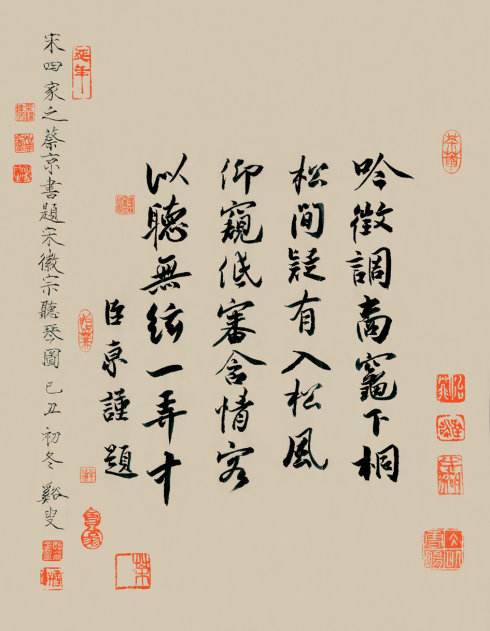 吟徵調商竈下桐
松間疑有入松風
仰窺低審含情客
似聽無絃一弄中
臣京謹題
宋四家之蔡京書題宋徽宗聽琴圖 己丑初冬 谿叟
延年